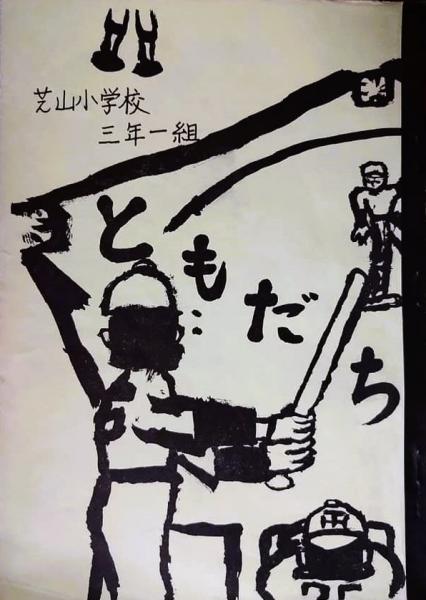 芝山小学校
三年一組
ともだち